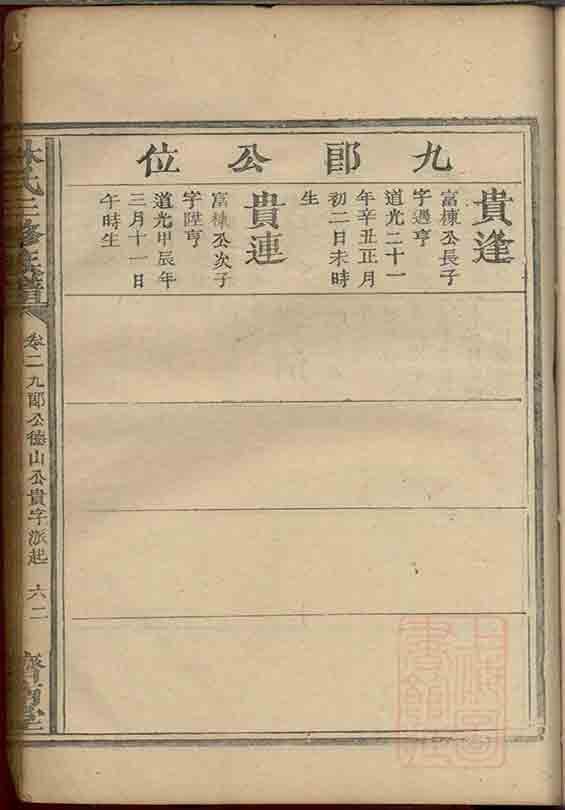 九郎公位
貴逢
富棟公長子
字遇亨
道光二十一
年辛丑正月
初二日未時
生
貴連
富棟公次子
字陞亨
道光甲辰年
三月十一日
午時生
林氏三修族譜
卷二九郎公德山公貴字派起 六二